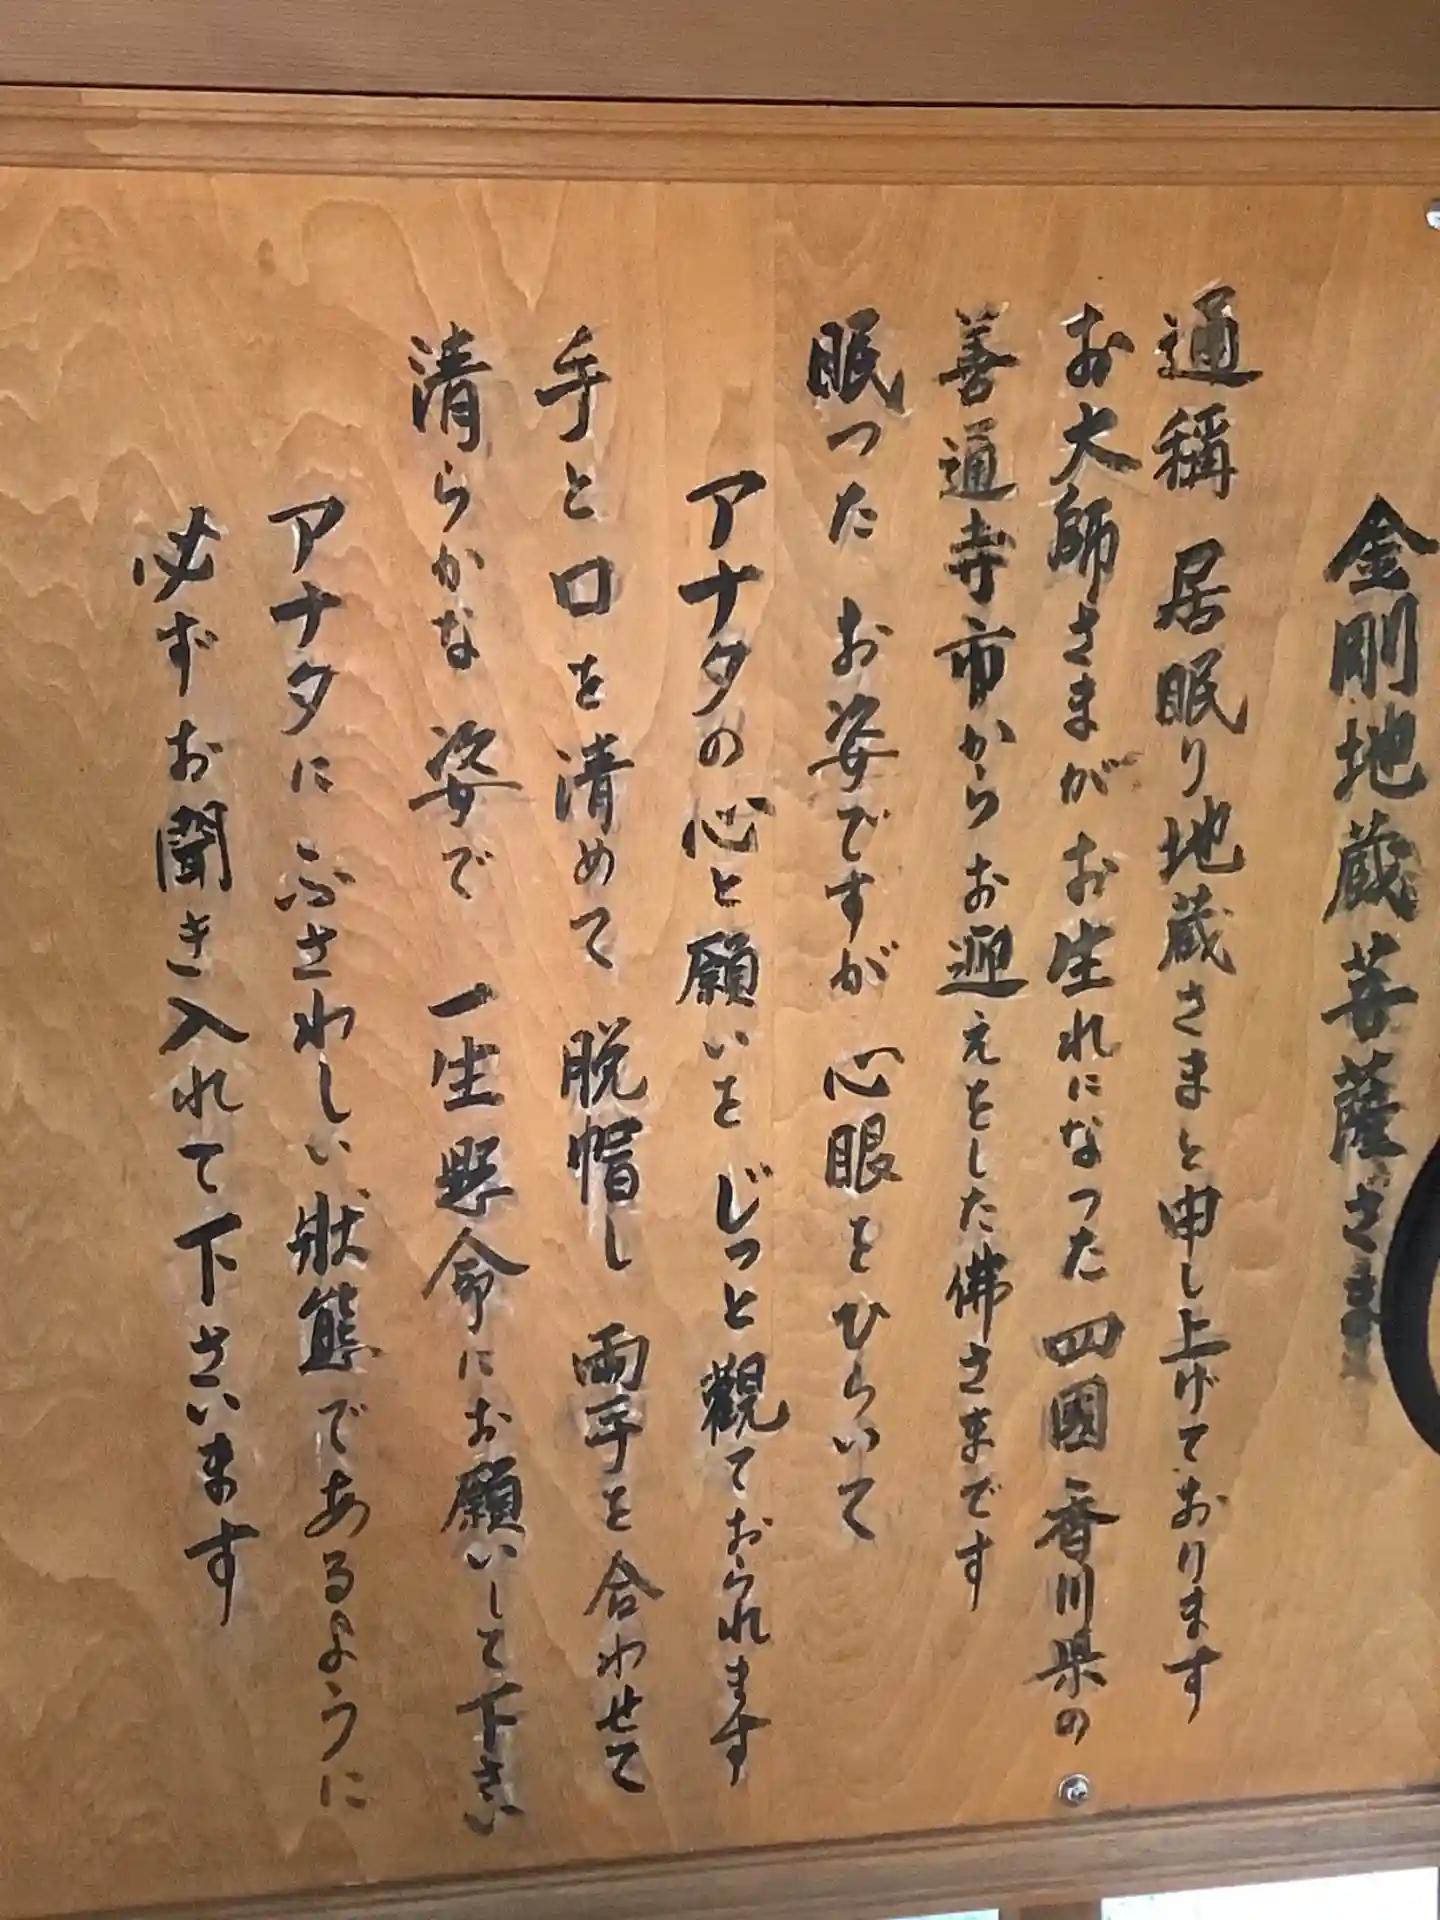 金剛地蔵菩薩さま
通稱 居眠り地蔵さまと申し上げております
お大師さまが お生れになった 四國 香川県の
善通寺市から お迎えをした佛さまです
眠った お姿ですが 心眼をひらいて
アナタの心と願いを じっと觀ておられます
手と口を清めて 脱帽し 両手を合わせて
清らかな 姿で 一生懸命にお願いして下さい
アナタに ふさわしい 狀態であるように
必ずお聞き入れて下さいます